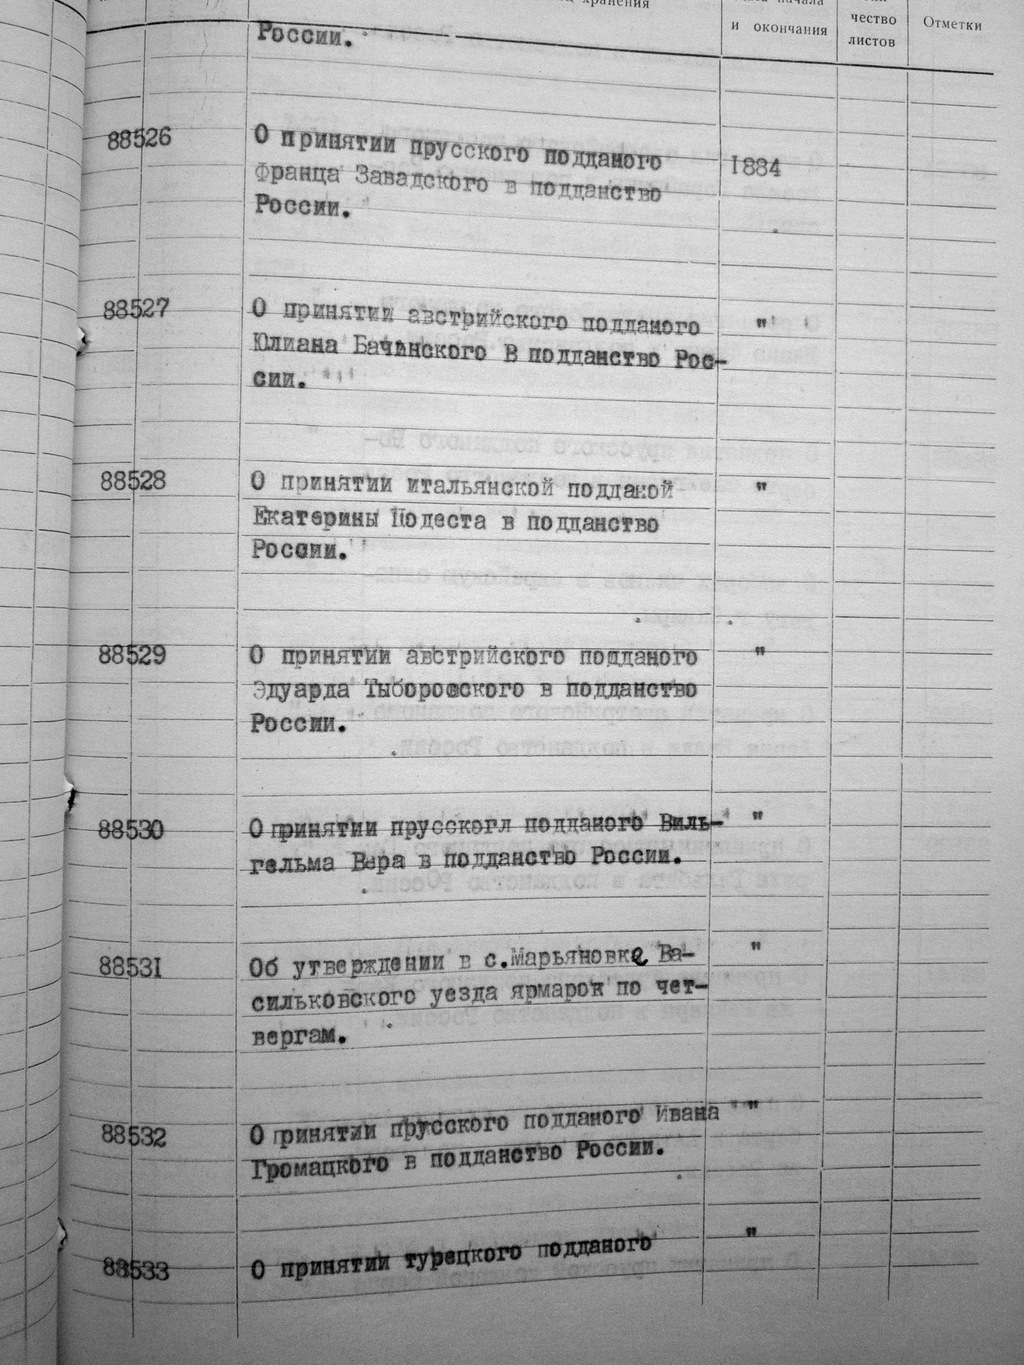 хранения
и окончания
чество
листов
Отметки
России.
88526
О принятии прусского подданого
Франца Завадского в подданство
России.
1884
88527
О принятии австрийского подданого
Юлиана Бачинского В подданство Рос-
сии.
"
88528
О принятии итальянской подданой
Екатерины Подеста в подданство
России.
"
88529
О принятии австрийского подданого
Эдуарда Тыборовского в подданство
России.
"
88530
О принятии прусскогл подданого Виль-
гельма Вера в подданство России.
"
88531
Об утверждении в с.Марьяновке Ва-
сильковского уезда ярмарок по чет-
вергам.
"
88532
О принятии прусского подданого Ивана
Громацкого в подданство России.
"
88533
О принятии турецкого подданого
"